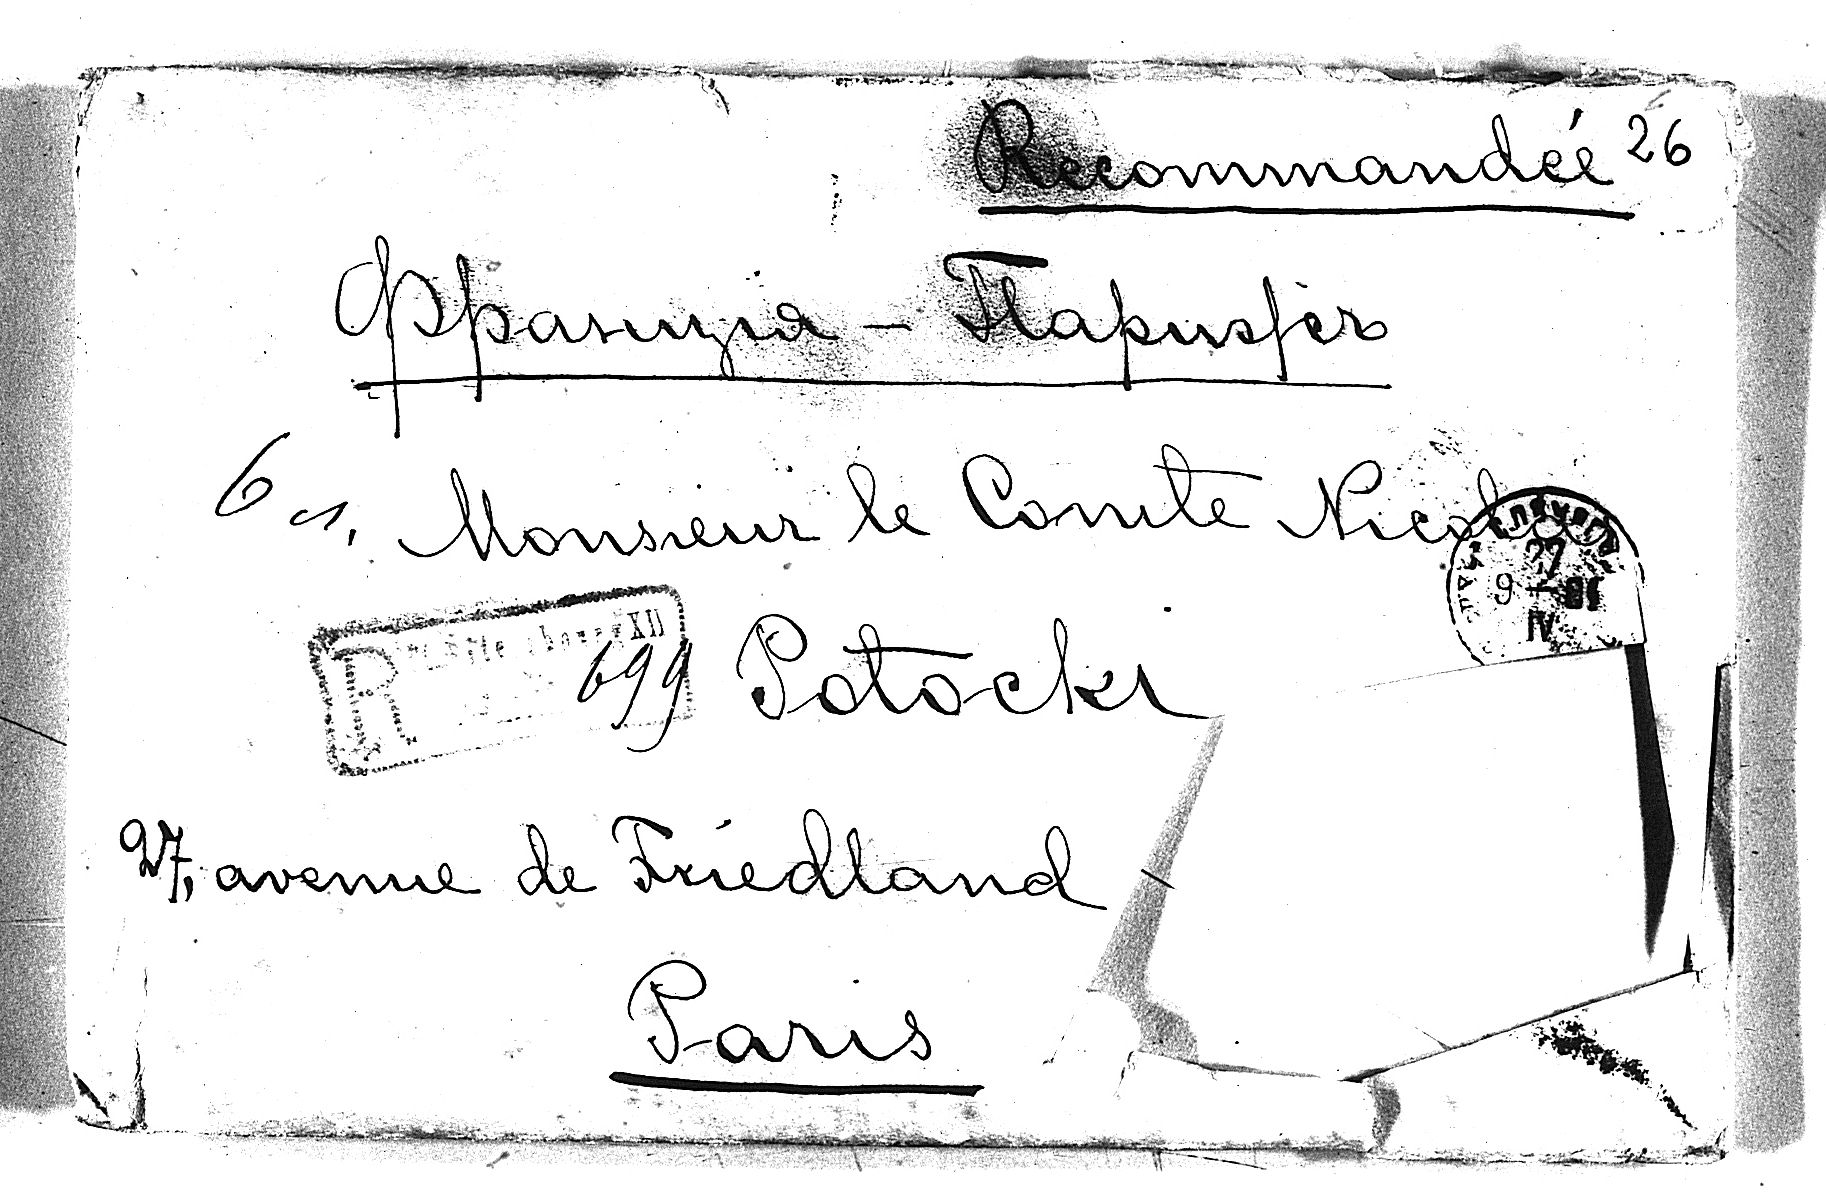 Recommandée 26
Франція – Парижъ
6 л. Monsieur le Comte Nicolas
R 699
Potocki
27, avenue de Friedland
Paris